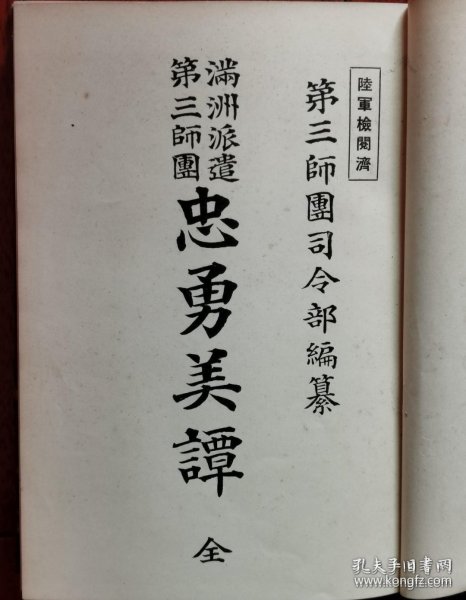 陸軍檢閱濟
第三師團司令部編纂
滿洲派遣
第三師團
忠勇美譚
全
孔夫子旧书网
www.kongfz.com